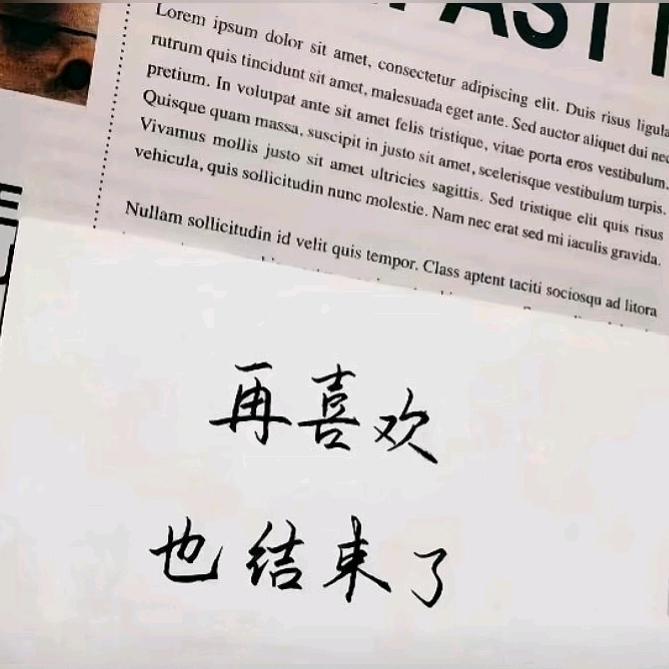 AST
Lorem ipsum dolor sit amet, consectetur adipiscing elit. Duis risus ligula
rutrum quis tincidunt sit amet, malesuada eget ante. Sed auctor aliquet dui nec
pretium. In volutpat ante sit amet felis tristique, vitae porta eros vestibulum.
Quisque quam massa, suscipit in justo sit amet, scelerisque vestibulum turpis.
Vivamus mollis justo sit amet ultricies sagittis. Sed tristique elit quis risus
vehicula, quis sollicitudin nunc molestie. Nam nec erat sed mi iaculis gravida.
Nullam sollicitudin id velit quis tempor. Class aptent taciti sociosqu ad litora
再喜欢
也结束了